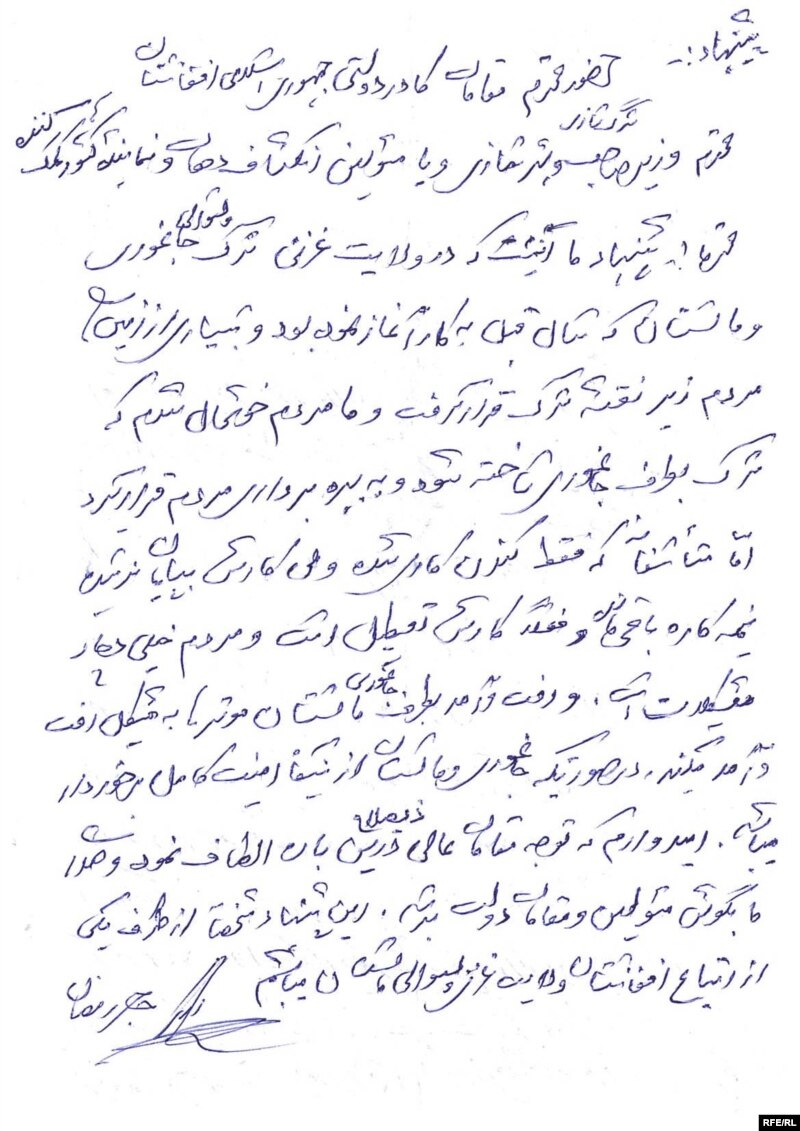 پیشنهاد:-
بحضور محترم مقامات کادر دولتی جمهوری اسلامی افغانستان
سرک سازی
محترم وزیر صاحب و یا مسئولین انکشاف دهات و نماینده کشور کمک کننده
محترما! پیشنهاد ما اینست که در ولایت غزنی سرک ولسوالی جاغوری
و مالستان که سال قبل به کار آغاز نموده بود و بسیاری از زمین های
مردم زیر نقشه سرک قرار گرفت و ما مردم خوشحال شدیم که
سرک بطرف جاغوری ساخته شود و به بهره برداری مردم قرار گیرد
اما متأسفانه که فقط کندن کاری شده ولی کارش بپایان نرسیده
نیمه کاره باقی مانده و فعلاً کارش تعطیل است و مردم خیلی دچار
مشکلات است. و رفت و آمد بطرف جاغوری مالستان موترها به مشکل رفت
و آمد میکند، در صورتیکه جاغوری و مالستان از نیگاه امنیت کامل برخوردار
میباشد. امیدوارم که توجه مقامات عالی ذیصلاح درین باره الطاف نموده و صدای
ما بگوش مسئولین و مقامات دولت برسد. این پیشنهاد شخصاً از طرف یکی
از اتباع افغانستان ولایت غزنی ولسوالی مالستان میباشم
رمضان
RFE/RL